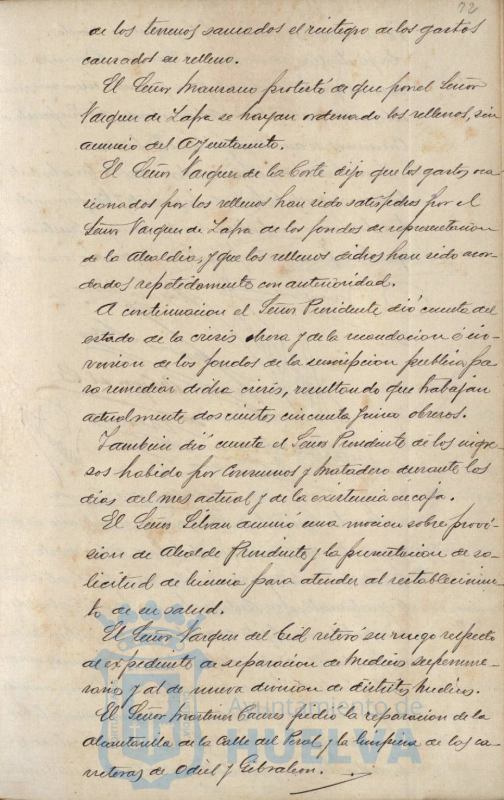 72
de los terrenos saneados el reintegro de los gastos
causados en relleno.
El Señor Manzano protestó de que por el Señor
Vazquez de Zafra se hayan ordenado los rellenos, sin
acuerdo del Ayuntamiento.
El Señor Vazquez de la Corte dijo que los gastos oca-
sionados por los rellenos han sido satisfechos por el
Señor Vazquez de Zafra de los fondos de representacion
de la Alcaldia, y que los rellenos dichos han sido acor-
dados repetidamente con anterioridad.
A continuacion el Señor Presidente dió cuenta del
estado de la crisis obrera y de la recaudacion é in-
version de los fondos de la suscripcion publica pa-
ra remediar dicha crisis, resultando que trabajan
actualmente doscientos cincuenta y cinco obreros.
Tambien dió cuenta el Señor Presidente de los ingre-
sos habido por Consumos y Matadero durante los
dias del mes actual y de la existencia en caja.
El Señor Gilvan anunció una mocion sobre provi-
sion de Alcalde Presidente y la presentacion de so-
licitud de licencia para atender al restablecimien-
to de su salud.
El Señor Vazquez del Cid reiteró su ruego respecto
al expediente de separacion de Medicos supernume-
rarios y al de nueva division de distritos Medicos.
El Señor Martinez Caeces pidió la reparacion de la
alcantarilla de la Calle del Peral, y la limpieza de las ca-
rreteras de Odiel y Gibraleon.
Ayuntamiento de
HUELVA